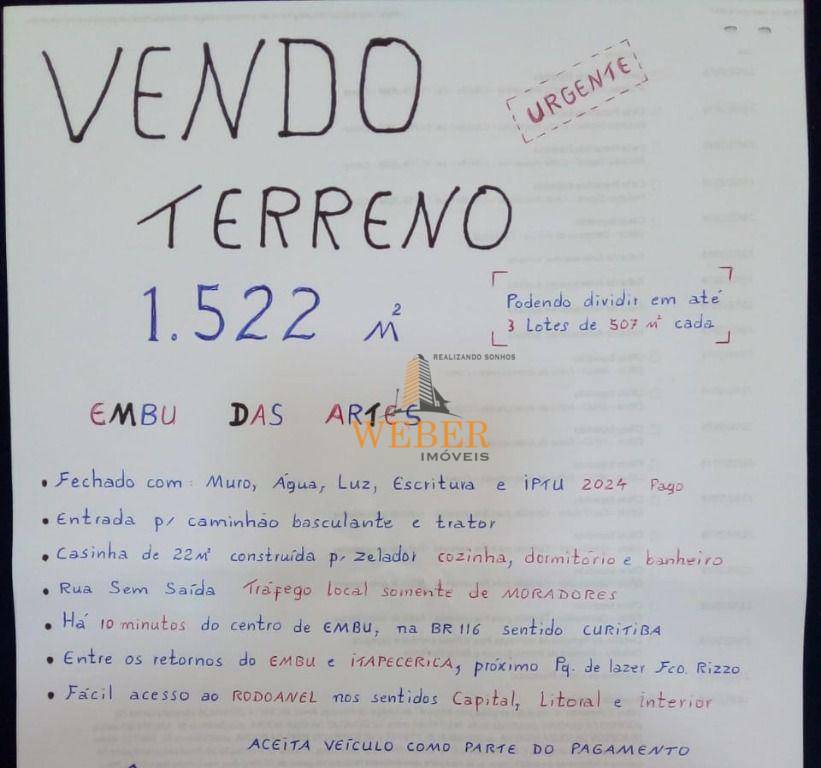 VENDO
URGENTE
TERRENO
1.522 m²
Podendo dividir em até
3 Lotes de 507 m² cada
REALIZANDO SONHOS
EMBU DAS ARTES
WEBER
IMÓVEIS
• Fechado com: Muro, Água, Luz, Escritura e iPTU 2024 Pago
• Entrada p/ caminhão basculante e trator
• Casinha de 22m² construída p/ zelador cozinha, dormitório e banheiro
• Rua Sem Saída Tráfego local somente de MORADORES
• Há 10 minutos do centro de EMBU, na BR 116 sentido CURITIBA
• Entre os retornos do EMBU e iTAPECERICA, próximo Pq. de lazer Fco. Rizzo
• Fácil acesso ao RODOANEL nos sentidos Capital, Litoral e interior
ACEITA VEÍCULO COMO PARTE DO PAGAMENTO